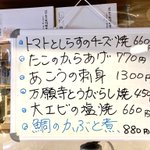 トマトとしらすのチーズ焼 660
たこのからあげ 770円
あこうの刺身 1300円
万願寺とうがらし焼 450
大エビの塩焼 660円
鯛のかぶと煮 880円